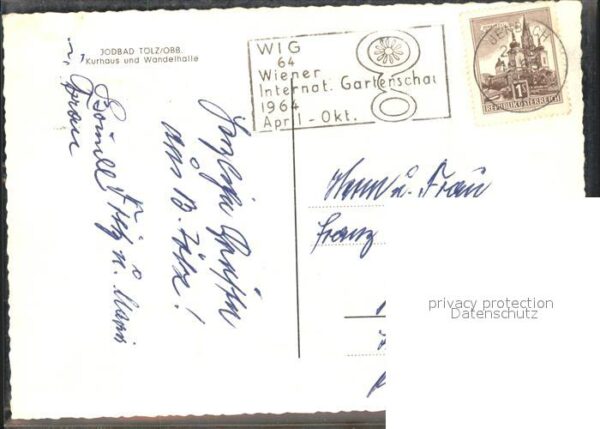 JODBAD TÖLZ/OBB.
Kurhaus und Wandelhalle
WIG
64
Wiener
Internat. Gartenschau
1964
April - Okt.
JENBACH
1S
REPUBLIK ÖSTERREICH
Herzliche Grüße
aus B. Tölz!
Familie Fritz u. Mami
u. Frau
Herrn u. Frau
Franz
privacy protection
Datenschutz